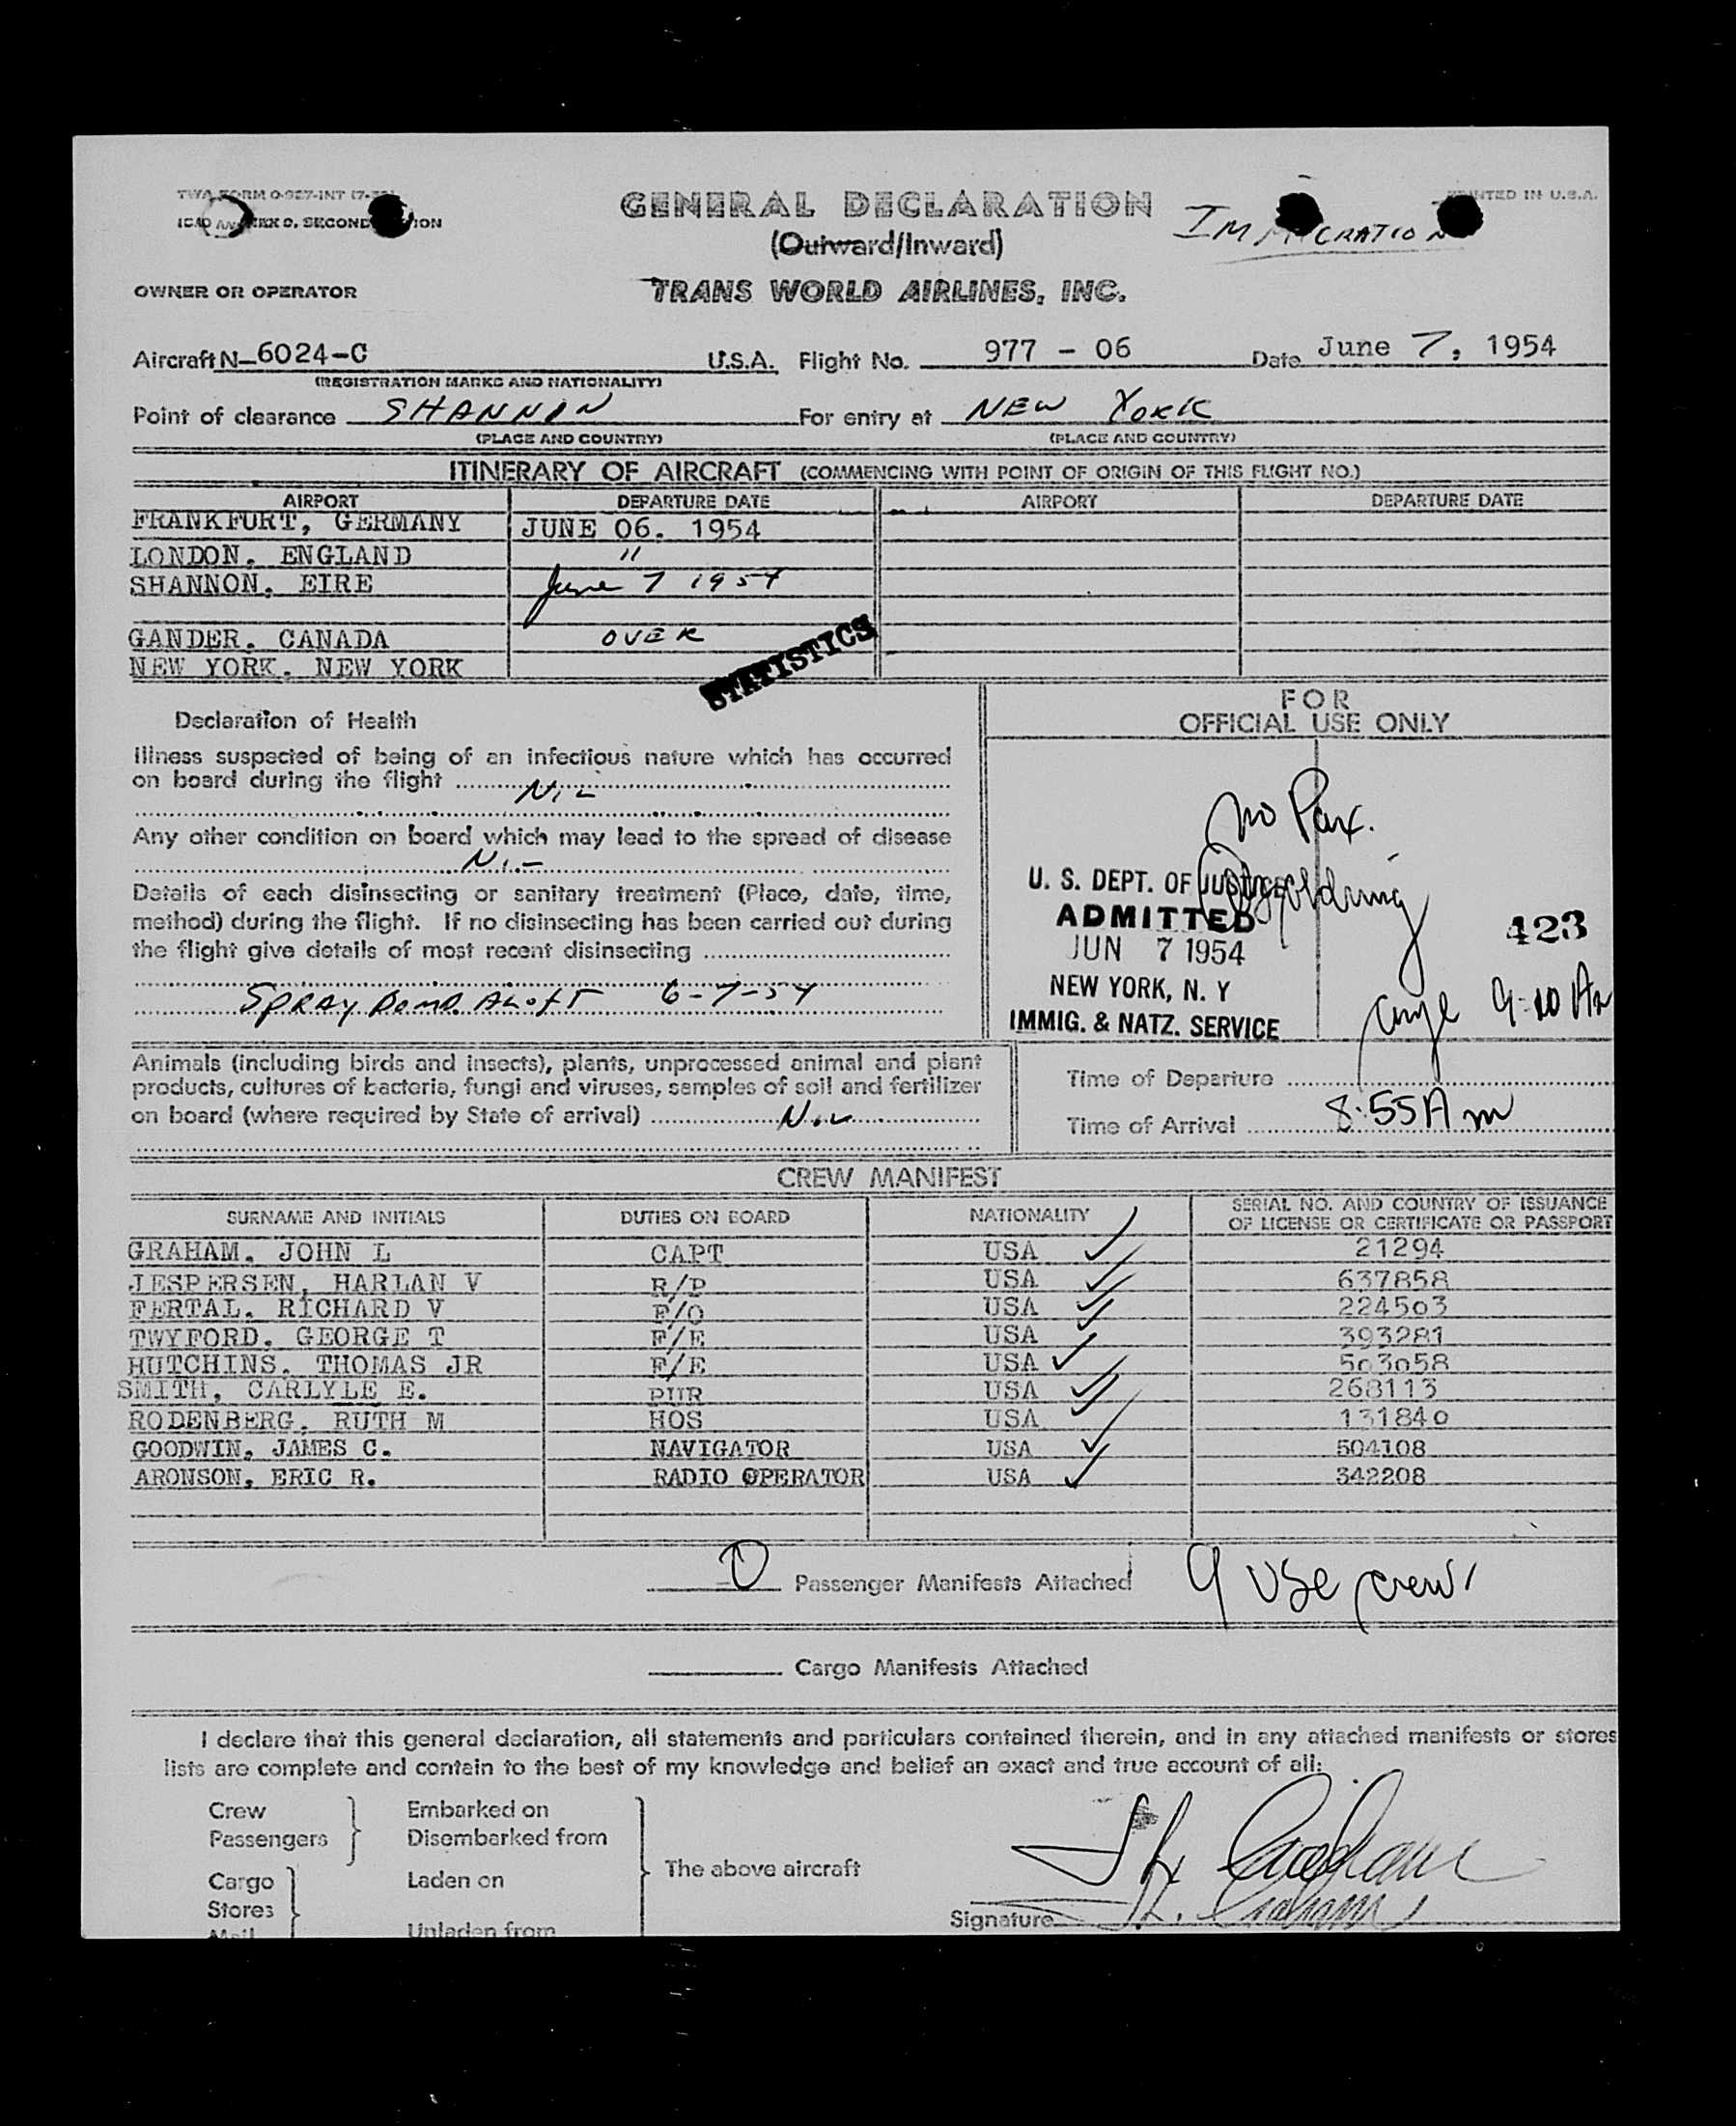 GENERAL DECLARATION
(Outward/Inward)
IMMIGRATION
PRINTED IN U.S.A.
OWNER OR OPERATOR
TRANS WORLD AIRLINES, INC.
Aircraft N-6024-C U.S.A. Flight No. 977 - 06 Date June 7, 1954
(REGISTRATION MARKS AND NATIONALITY)
Point of clearance SHANNON For entry at NEW YORK
(PLACE AND COUNTRY) (PLACE AND COUNTRY)
ITINERARY OF AIRCRAFT (COMMENCING WITH POINT OF ORIGIN OF THIS FLIGHT NO.)
AIRPORT DEPARTURE DATE AIRPORT DEPARTURE DATE
FRANKFURT, GERMANY JUNE 06. 1954
LONDON. ENGLAND "
SHANNON. EIRE June 7 1954
GANDER. CANADA OVER
NEW YORK. NEW YORK
STATISTICS
Declaration of Health
Illness suspected of being of an infectious nature which has occurred
on board during the flight NIL
Any other condition on board which may lead to the spread of disease
NIL
Details of each disinsecting or sanitary treatment (Place, date, time,
method) during the flight. If no disinsecting has been carried out during
the flight give details of most recent disinsecting
SPRAY BOMB ALOFT 6-7-54
FOR
OFFICIAL USE ONLY
no Pax.
U. S. DEPT. OF JUSTICE
ADMITTED
JUN 7 1954
NEW YORK, N. Y
IMMIG. & NATZ. SERVICE
423
Animals (including birds and insects), plants, unprocessed animal and plant
products, cultures of bacteria, fungi and viruses, samples of soil and fertilizer
on board (where required by State of arrival) NIL
Time of Departure
Time of Arrival 8:55 AM
CREW MANIFEST
SURNAME AND INITIALS DUTIES ON BOARD NATIONALITY SERIAL NO. AND COUNTRY OF ISSUANCE
OF LICENSE OR CERTIFICATE OR PASSPORT
GRAHAM. JOHN L CAPT USA 21294
JESPERSEN, HARLAN V R/P USA 637858
FERTAL. RICHARD V F/O USA 224503
TWYFORD, GEORGE T F/E USA 393281
HUTCHINS, THOMAS JR F/E USA 503058
SMITH, CARLYLE E. PUR USA 268113
RODENBERG, RUTH M HOS USA 131840
GOODWIN, JAMES C. NAVIGATOR USA 504108
ARONSON, ERIC R. RADIO OPERATOR USA 342208
0 Passenger Manifests Attached 9 USC crew
Cargo Manifests Attached
I declare that this general declaration, all statements and particulars contained therein, and in any attached manifests or stores
lists are complete and contain to the best of my knowledge and belief an exact and true account of all:
Crew Embarked on
Passengers Disembarked from
The above aircraft
Cargo Laden on
Stores
Signature J.L. Graham
Mail Unladen from